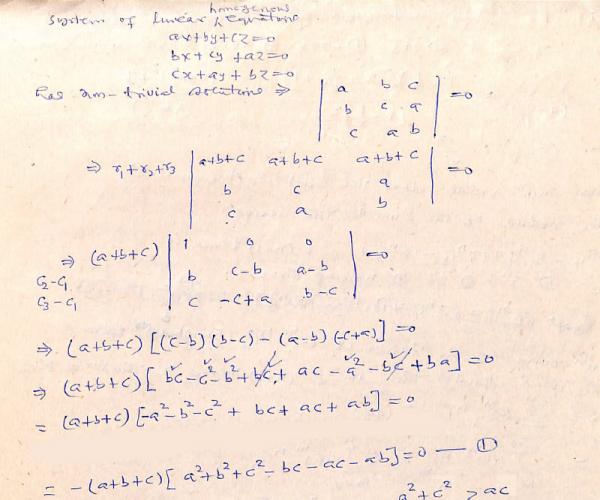 homogenous
System of linear ^ equations
ax+by+cz=0
bx+cy+az=0
cx+ay+bz=0
has non-trivial solutions ⇒ | a b c |
| b c a | =0
| c a b |
⇒ r₁+r₂+r₃ | a+b+c a+b+c a+b+c |
| b c a | =0
| c a b |
⇒ (a+b+c) | 1 0 0 |
C₂-C₁ | b c-b a-b | =0
C₃-C₁ | c -c+a b-c |
⇒ (a+b+c) [(c-b)(b-c) - (a-b)(-c+a)] =0
⇒ (a+b+c) [bc-c²-b²+bc+ ac-a²-bc+ba] =0
= (a+b+c) [-a²-b²-c²+ bc+ac+ab] =0
= -(a+b+c) [a²+b²+c²-bc-ac-ab]=0 — ①
a²+c² > ac